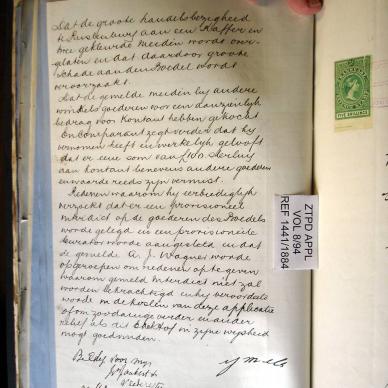 Dat de groote handelsbezigheid
te Rustenburg aan een Kaffer en
twee gekleurde meiden wordt over-
gelaten en dat daardoor groote
schade aan den Boedel wordt
veroorzaakt.
Dat de gemelde meiden bij andere
winkels goederen voor een aanzienlijk
bedrag voor Kontant hebben gekocht
En Comparant zegt verder dat hij
vernomen heeft en werkelijk gelooft
dat er eene som van £100. Sterling
aan kontant benevens andere goederen
en waarde reeds zijn vermist.
Redenen waarom hij eerbiediglijk
verzoekt dat er een provisioneel
interdict op de goederen des Boedels
worde gelegd en een provisioneele
Curator worde aangesteld en dat
de gemelde A. J. Wagner worde
opgeroepen om redenen op te geven
waarom gemeld interdict niet zal
worden bekrachtigd en hij veroordeeld
worde in de kosten van deze applicatie
of om zoodanige verder en ander
relief als de Ed. Hof in zijne wijsheid
mogt goedvinden.
Beëdigd voor mij
FIVE SHILLINGS
ZTPD APPL
VOL 8/94
REF 1441/1884